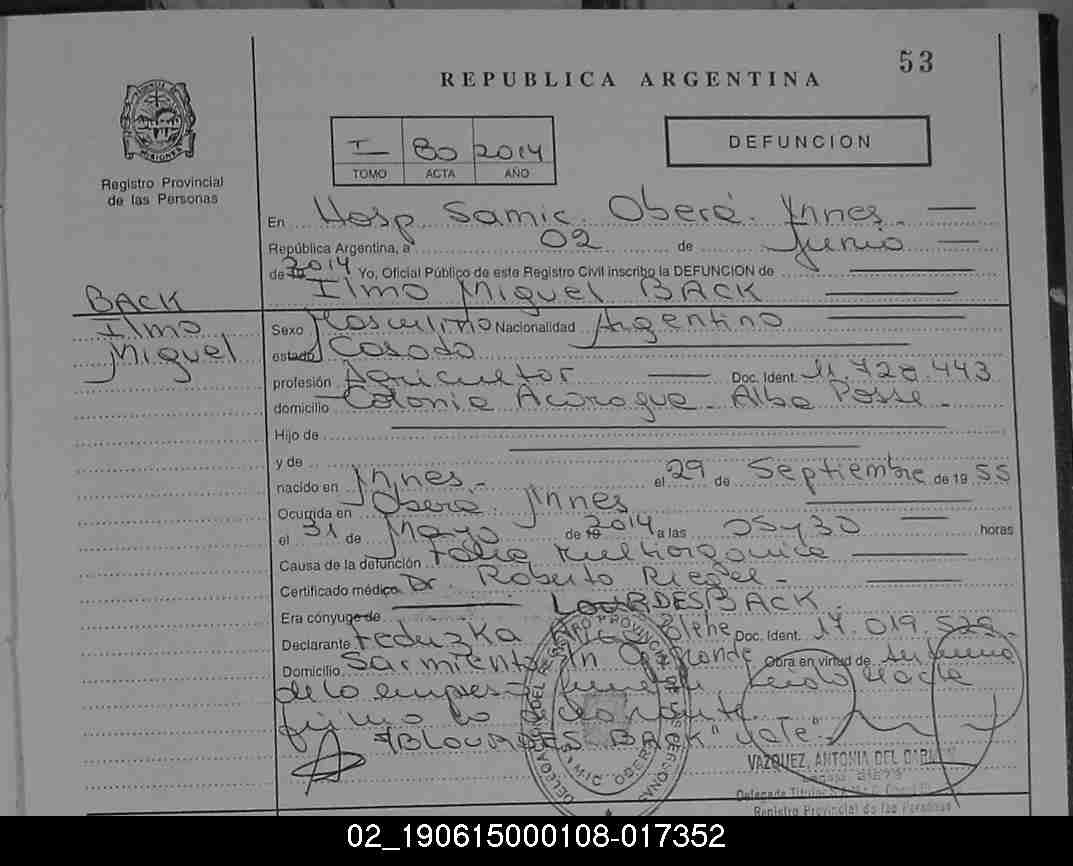 53
REPUBLICA ARGENTINA
I 80 2014
TOMO ACTA AÑO
DEFUNCION
MISIONES
Registro Provincial
de las Personas
En Hosp Samic. Oberá. Mnes.
República Argentina, a 02 de Junio
de 2014 Yo, Oficial Público de este Registro Civil inscribo la DEFUNCION de
Ilmo Miguel BACK
BACK
Ilmo
Miguel
Sexo Masculino Nacionalidad Argentino
estado Casado
profesión Agricultor Doc. Ident. 11.728.443
domicilio Colonia Acaragua - Alba Posse -
Hijo de
y de
nacido en Mnes. - el 29 de Septiembre de 1955
Ocurrida en Oberá. Mnes
el 31 de Mayo de 2014 a las 05 y 30 horas
Causa de la defunción Falla multiorganica
Certificado médico Dr. Roberto Riegel -
Era cónyuge de LOURDES BACK
Declarante Feduzka Doc. Ident. 14.019.529
Domicilio Sarmiento Obra en virtud de
de la empresa
firma la declarante
BACK" vale.
VAZQUEZ, ANTONIA DEL CARMEN
Delegada Titular
Registro Provincial de las Personas
02_190615000108-017352